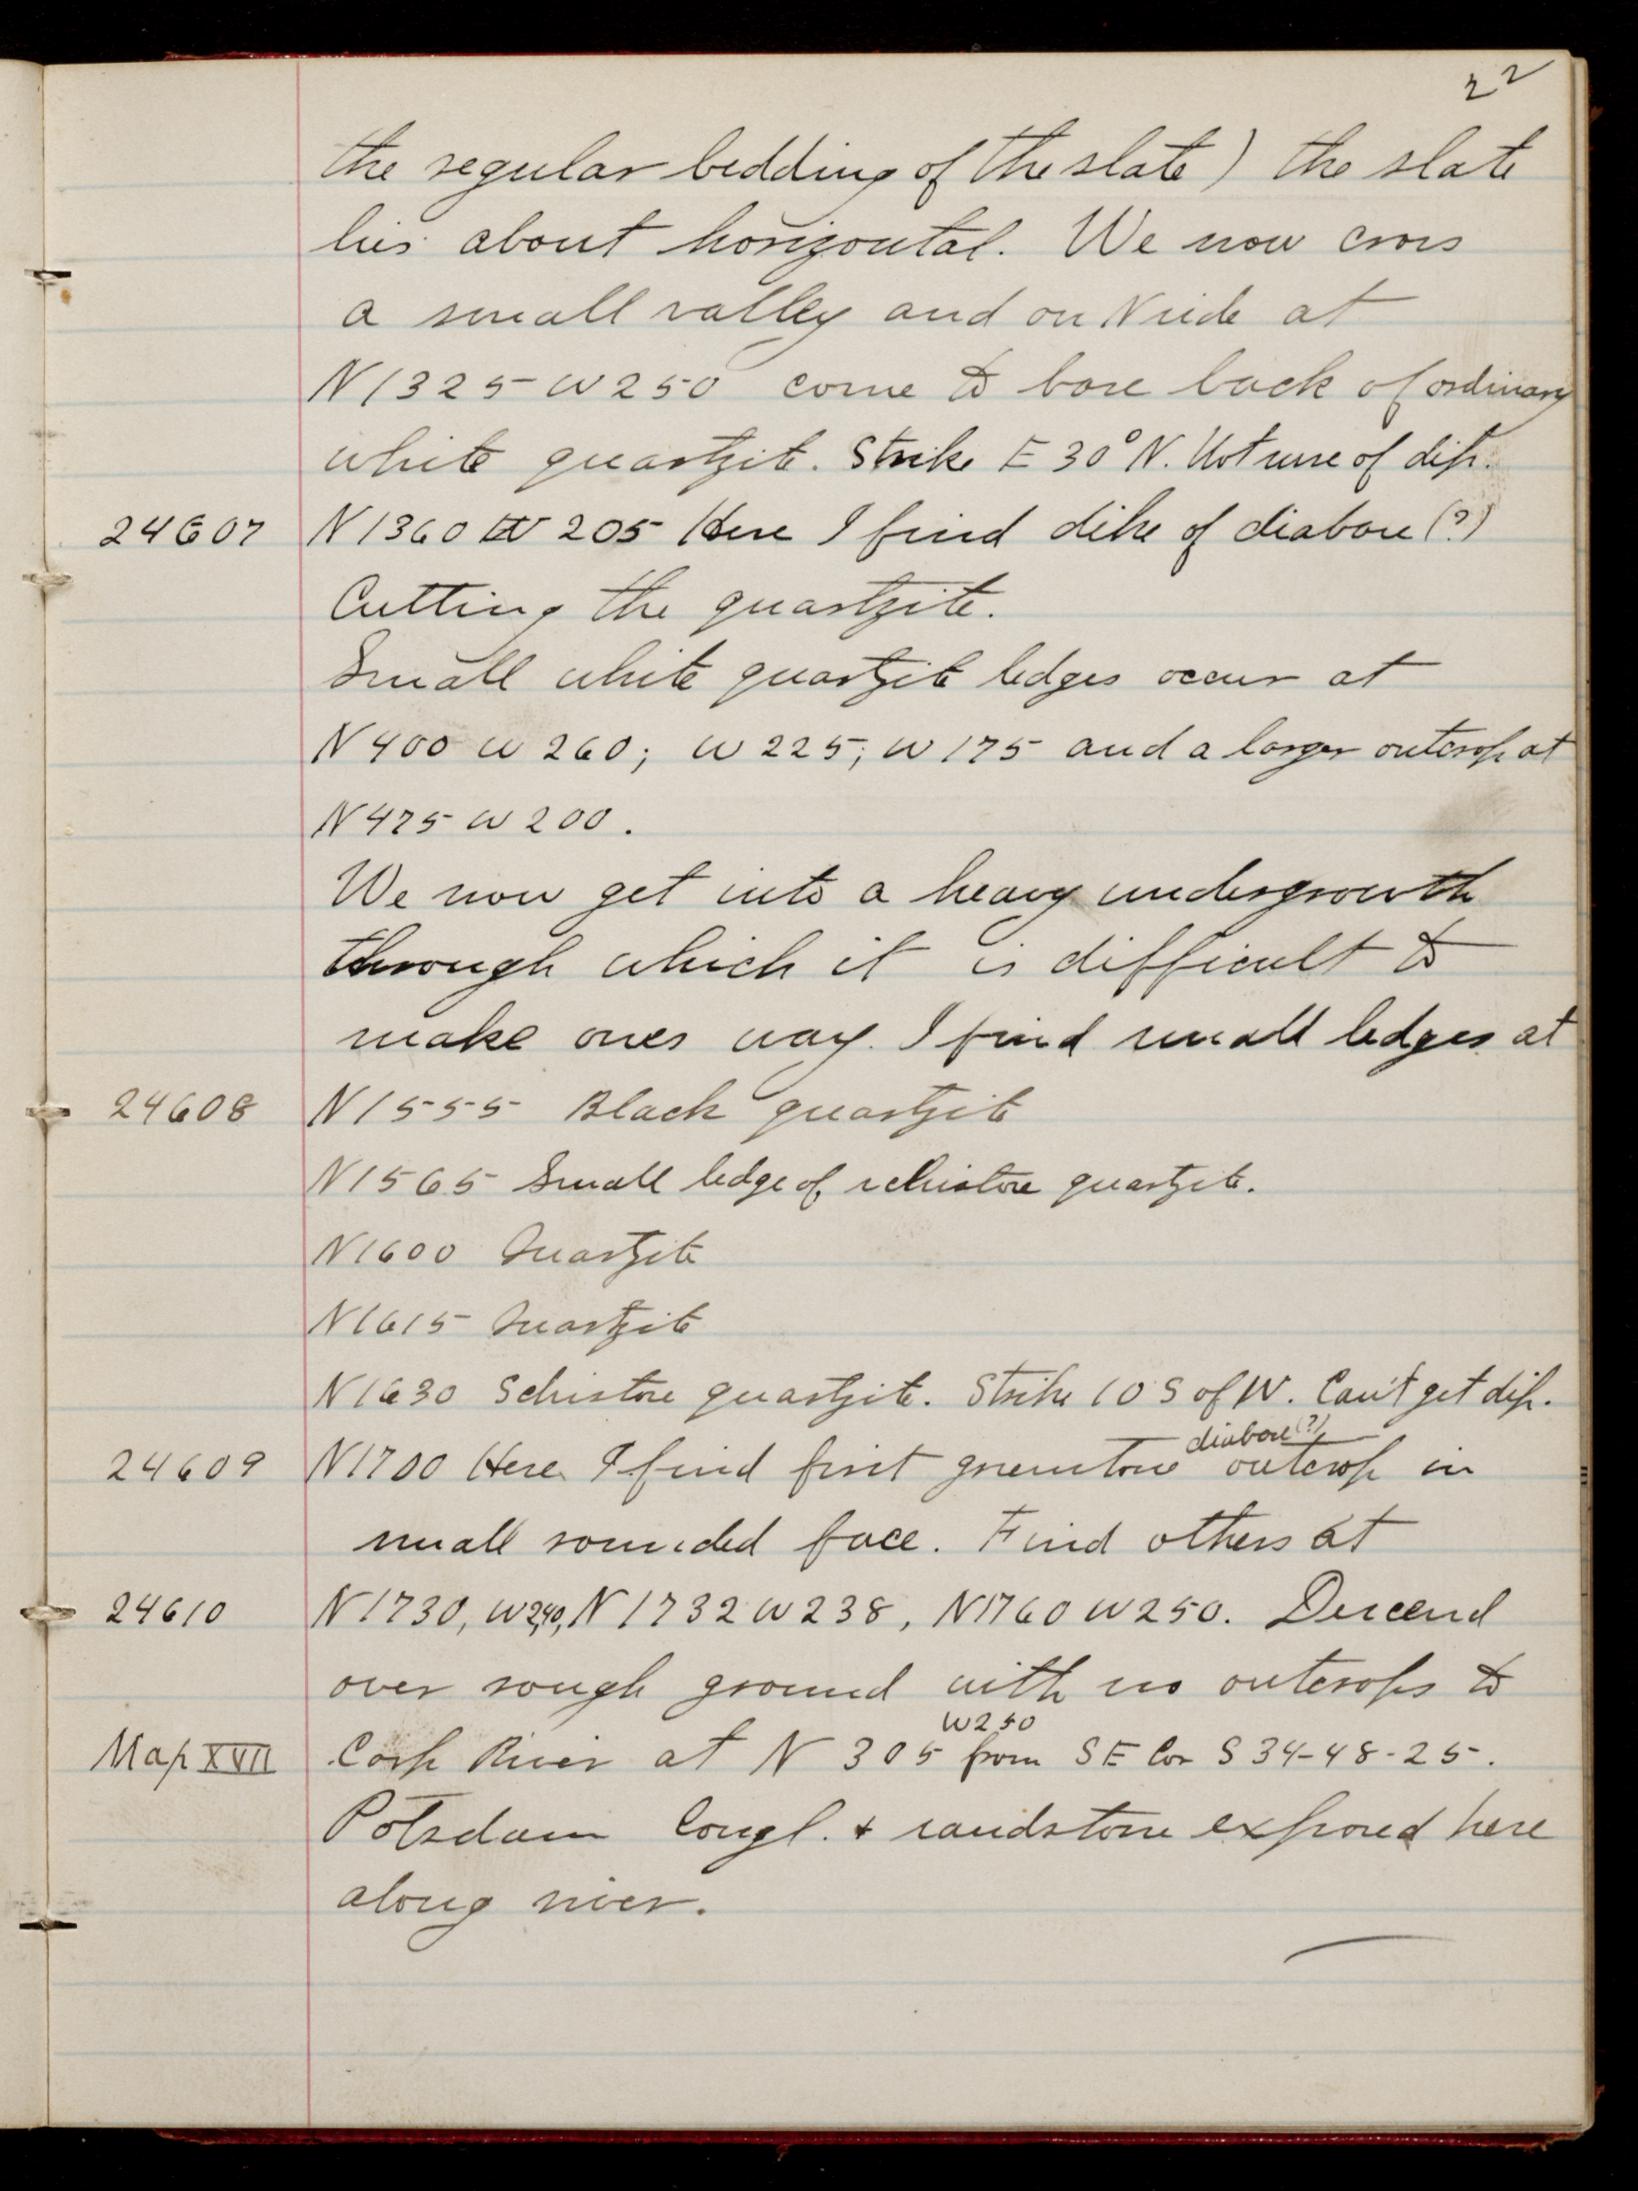 22
the regular bedding of the slate) the slate
lies about horizontal. We now cross
a small valley and on N side at
N1325 W250 come to bare back of ordinary
white quartzite. Strike E 30° N. Not sure of dip.
24607 N1360 W 205 Here I find dike of diabase (?)
Cutting the quartzite.
Small white quartzite ledges occur at
N400 W 260; W 225; W 175 and a larger outcrop at
N475 W 200.
We now get into a heavy undergrowth
through which it is difficult to
make ones way. I find small ledges at
24608 N1555 Black quartzite
N1565 Small ledge of schistose quartzite.
N1600 Quartzite
N1615 Quartzite
N1630 Schistose quartzite. Strike 10 S of W. Can't get dip.
diabase (?)
24609 N1700 Here I find first greenstone outcrop in
small rounded face. Find others at
24610 N1730, W240, N1732 W238, N1760 W250. Descend
over rough ground with no outcrops to
W250
Map XVII Carp River at N 305 from SE Cor S 34-48-25.
Potsdam Congl. + sandstone exposed here
along river.